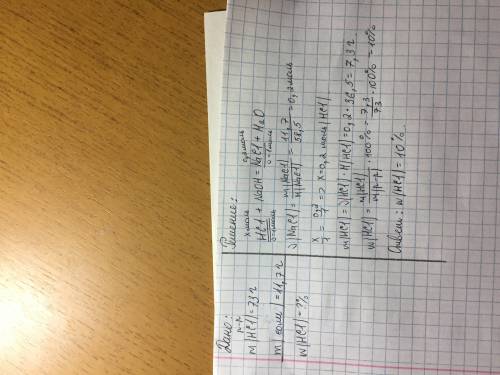 Дано:
р-р
m(HCl)=73 г
m(соли)=11,7 г
W(HCl)=?%
Решение:
x моль 0,2 моль
HCl + NaOH = NaCl + H2O
ν=1моль ν=1моль
ν(NaCl)= m(NaCl)/M(NaCl) = 11,7/58,5 = 0,2 моль
x/1 = 0,2/1 => x=0,2 моль (HCl)
m(HCl)=ν(HCl)·M(HCl)=0,2·36,5=7,3 г
W(HCl)= m(HCl)/m(р-р) ·100%= 7,3/73 ·100%=10%
Ответ: W(HCl)=10%.